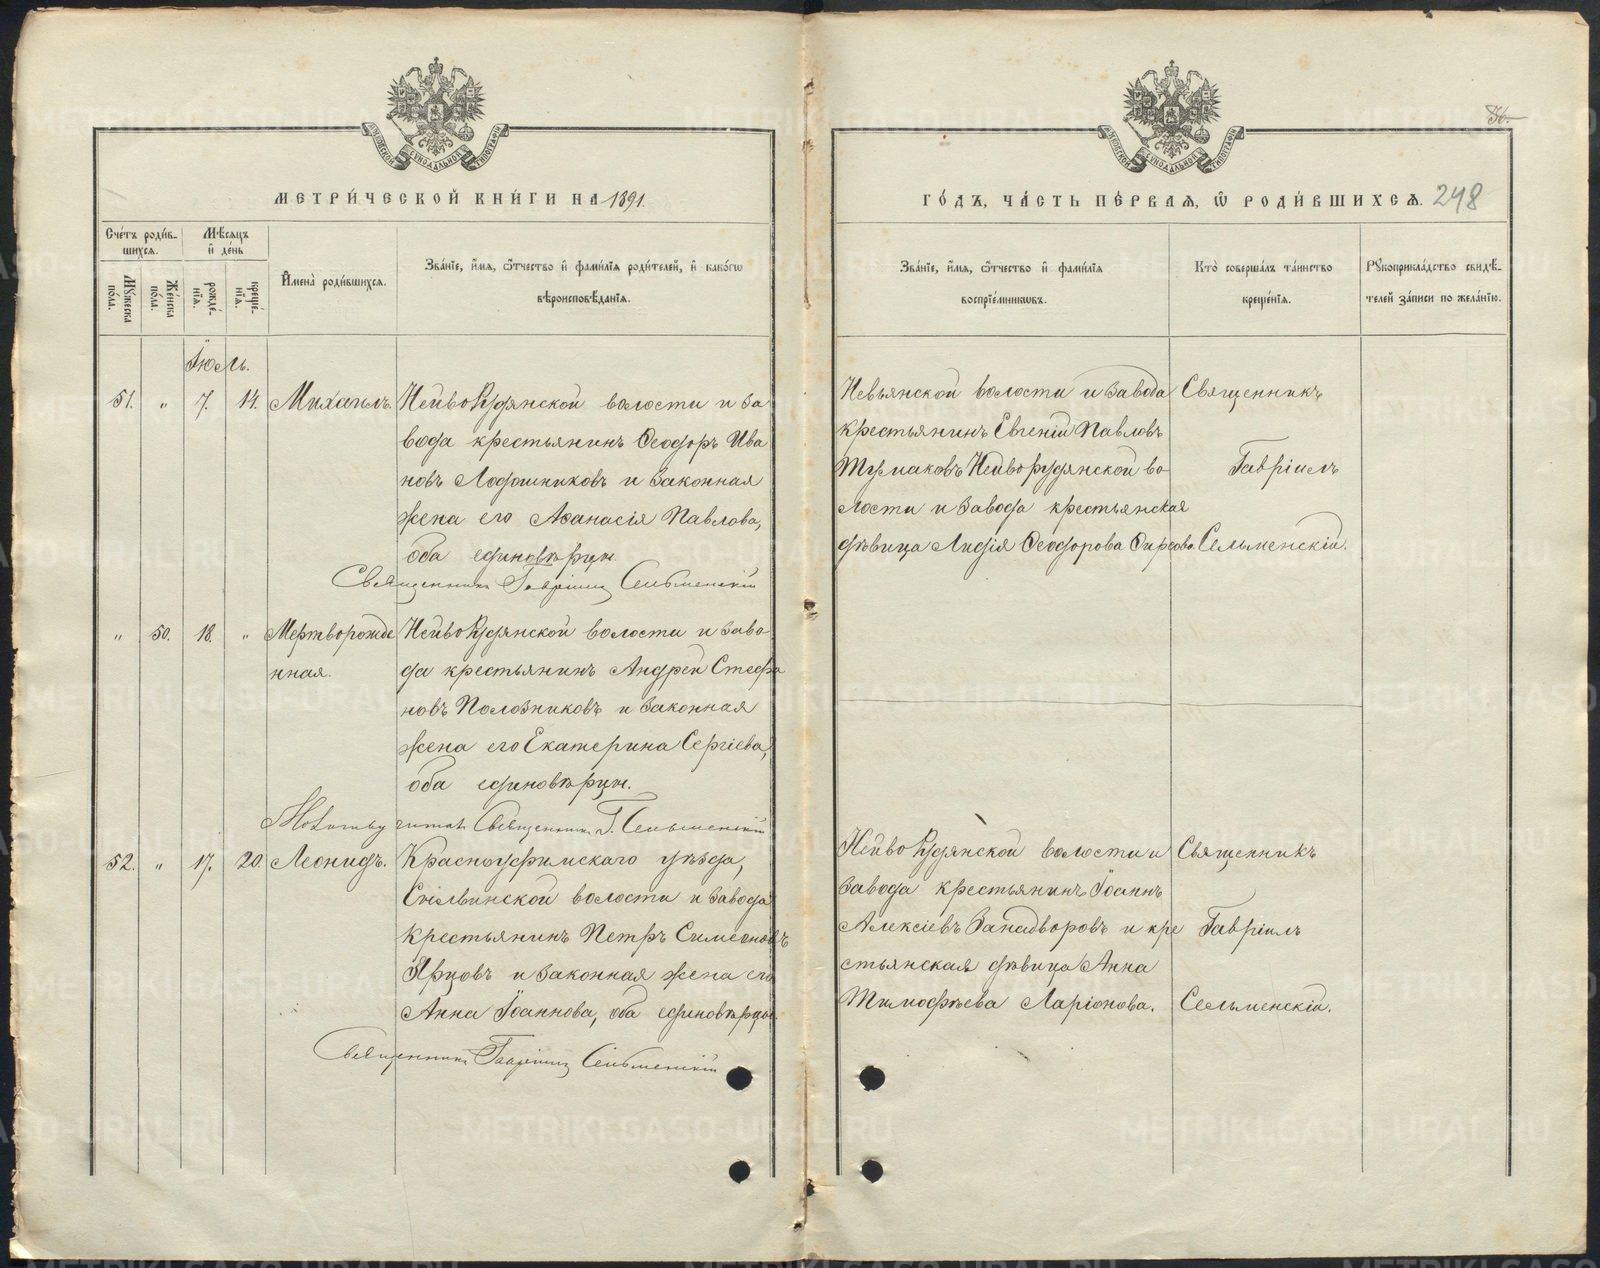 36.
МЕТРИ́ЧЕСКОЙ КНИ́ГИ НА 1891.
ГО́ДЪ, ЧА́СТЬ ПЕ́РВАЯ, Ѡ РОДИ́ВШИХСЯ. 248
Сче́тъ роди́в-
шихся.
Мꙋ́жеска по́ла.
Же́нска по́ла.
Мѣ́сяцъ
и҆ де́нь
рожде́-
нїя.
креще́-
нїя.
И҆мена̀ роди́вшихся.
Зва́нїе, и҆́мя, ѻ҆́тчество и҆ фами́лїя роди́телей, и҆ како́гѡ
вѣроисповѣ́данїя.
Зва́нїе, и҆́мя, ѻ҆́тчество и҆ фами́лїя
воспрїе́мниковъ.
Кто̀ соверша́лъ та́инство
креще́нїя.
Рꙋкоприкла́дство свидѣ́-
телей за́писи по жела́нїю.
Іюль.
51. „ 7. 14. Михаилъ.
НейвоРудянской волости и за
вода крестьянинъ Ѳеодоръ Ива
новъ Лодошниковъ и законная
жена его Аѳанасія Павлова,
оба единовѣрцы.
Священникъ Гавріилъ Сельменскій
Невьянской волости и завода
крестьянинъ Евгеній Павловъ
Тумаковъ Нейворудянской во-
лости и завода крестьянская
дѣвица Лидія Ѳеодорова Фирсова.
Священникъ
Гавріилъ
Сельменскій.
„ 50. 18. „ Мертворожде
нная.
НейвоРудянской волости и заво-
да крестьянинъ Андрей Стефа
новъ Полозниковъ и законная
жена его Екатерина Сергіева,
оба единовѣрцы.
Молитву читалъ Священникъ Г. Сельменскій
52. „ 17. 20. Леонидъ.
Красноуфимскаго уѣзда,
Сылвинской волости и завода
крестьянинъ Петръ Симеоновъ
Ярцовъ и законная жена его
Анна Іоаннова, оба единовѣрцы.
Священникъ Гавріилъ Сельменскій
НейвоРудянской волости и
завода крестьянинъ Іоаннъ
Алексіевъ Западворовъ и кре
стьянская дѣвица Анна
Тимофѣева Ларіонова.
Священникъ
Гавріилъ
Сельменскій.
METRIKI.GASO-URAL.RU